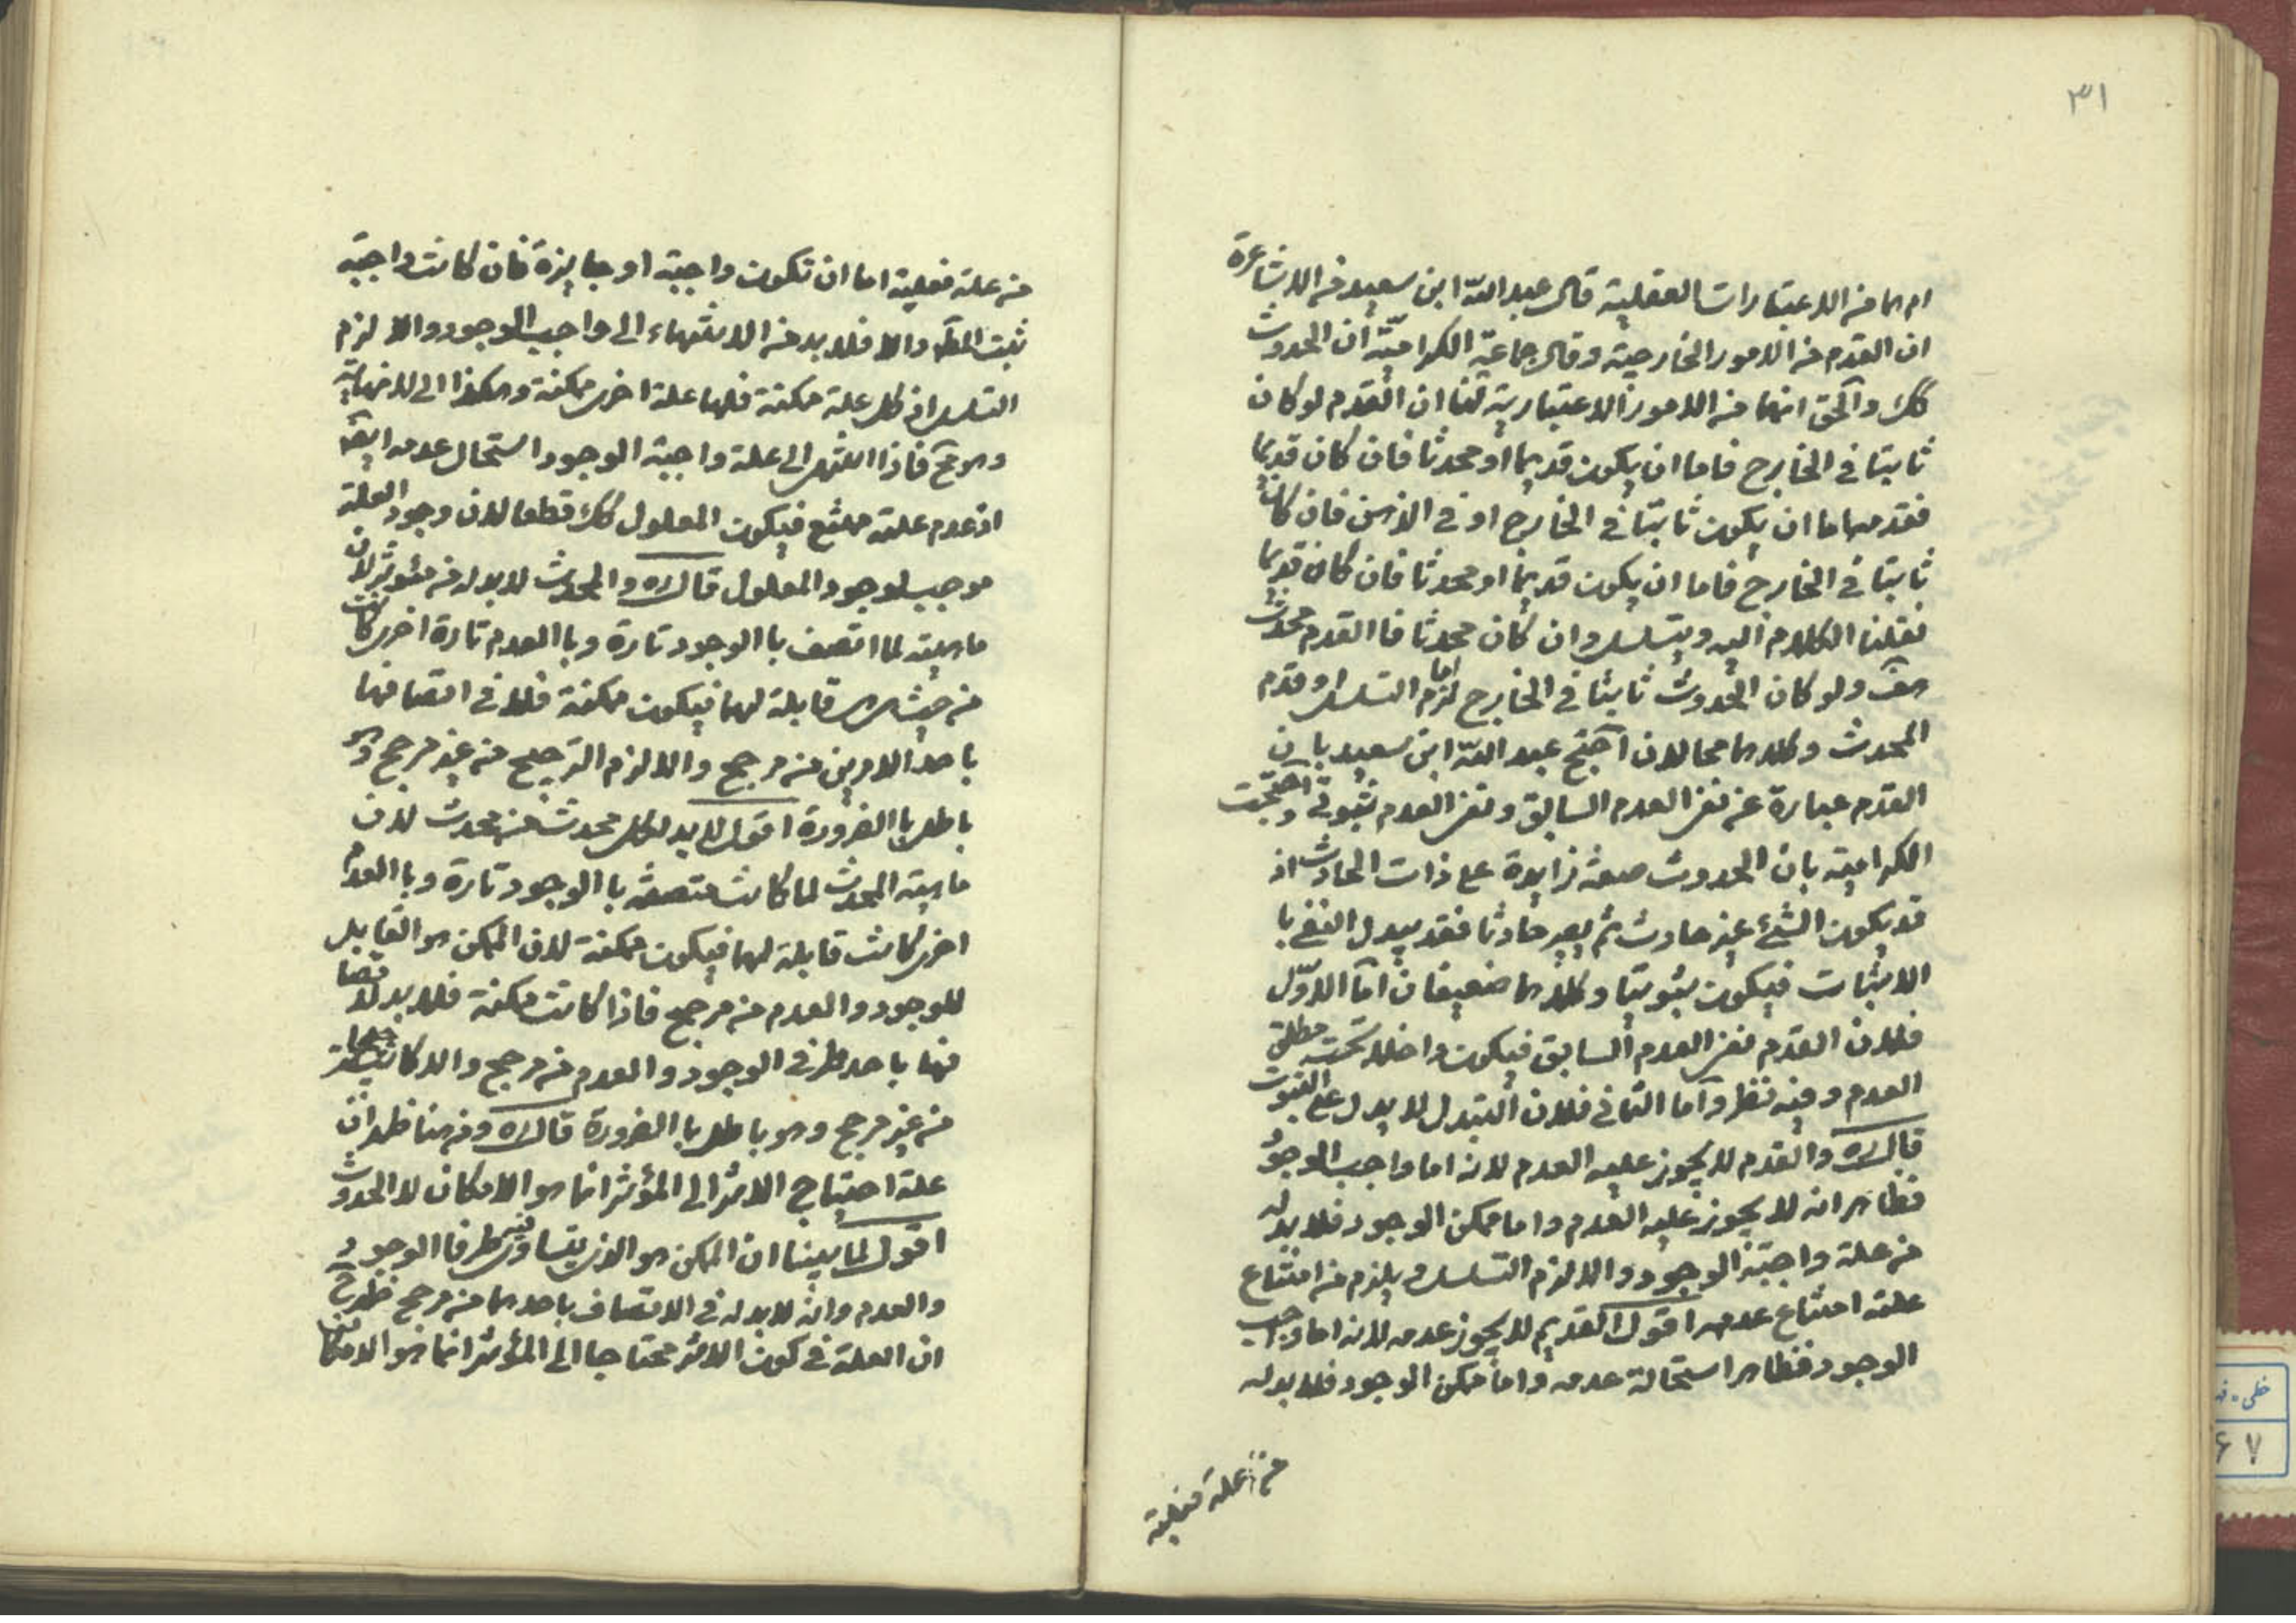 ٣١
ام هما من الاعتبارات العقلية قال عبد الله ابن سعيد من الاشاعرة
ان القدم من الامور الخارجية وقال جماعة الكرامية ان الحدوث
كك والحق انهما من الامور الاعتبارية لنا ان القدم لو كان
ثابتا في الخارج فاما ان يكون قديما او محدثا فان كان قديما
فقدمه اما ان يكون ثابتا في الخارج او في الذهن فان كان
ثابتا في الخارج فاما ان يكون قديما او محدثا فان كان قديما
نقلنا الكلام اليه ويتسلسل وان كان محدثا فا القدم محدث
هف ولو كان الحدوث ثابتا في الخارج لزم اما التسلسل او قدم
المحدث وكلاهما محالان احتج عبد الله ابن سعيد بان
القدم عبارة عن نفي العدم السابق ونفي العدم ثبوتي واحتجت
الكرامية بان الحدوث صفة زايدة على ذات الحادث اذ
قد يكون الشئ غير حادث ثم يصير حادثا فقد يبدل النفي با
الاثبات فيكون ثبوتيا وكلاهما ضعيفان اما الاول
فلان القدم نفي العدم السابق فيكون داخلا تحت مطلق
العدم وفيه نظر واما الثاني فلان التبدل لا يدل على الثبوت
قال ره والقدم لا يجوز عليه العدم لانه اما واجب الوجو
فظاهر انه لا يجوز عليه العدم واما ممكن الوجود فلا بد له
من علة واجبة الوجود والا لزم التسلسل ويلزم من امتناع
علته امتناع عدمه اقول القديم لا يجوز عدمه لانه اما واجب
الوجود فظاهر استحالة عدمه واما ممكن الوجود فلا بد له
من علة فعلية
من علة فعلية اما ان تكون واجبة او جايزة فان كانت واجبة
ثبت المط والا فلا بد من الانتهاء الى واجب الوجود والا لزم
التسلسل اذ كل علة ممكنة فلها علة اخرى ممكنة وهكذا الى لا نهاية
وهو مح فاذا انتهى الى علة واجبة الوجود استحال عدمه ايضا
اذ عدم علته ممتنع فيكون المعلول كك قطعا لان وجود العلة
موجب لوجود المعلول قال ره والمحدث لا بد له من مؤثر لان
ماهيته لما اتصف با الوجود تارة وبا العدم تارة اخرى كانت
من حيث هي قابلة لهما فيكون ممكنة فلا في اتصافها
باحد الامرين من مرجح والا لزم الترجيح من غير مرجح وهو
باطل با الضرورة اقول لا بد لكل محدث من محدث لان
ماهية المحدث لما كانت متصفة با الوجود تارة وبا العدم
اخرى كانت قابلة لهما فيكون ممكنة لان الممكن هو القابل
للوجود والعدم من مرجح فاذا كانت ممكنة فلا بد لاتصا
فها باحد طرفي الوجود والعدم من مرجح والا كانت
من غير مرجح وهو باطل با الضرورة قال ره ومن هنا ظهر ان
علة احتياج الاثر الى المؤثر انما هو الامكان لا الحدوث
اقول لما بينا ان الممكن هو الذي يتساوى طرفا الوجود
والعدم وانه لا بد له في الاتصاف باحدهما من مرجح ظهر ح
ان العلة في كون الاثر محتاجا الى المؤثر انما هو الامكان
خطي - فه
۶۷